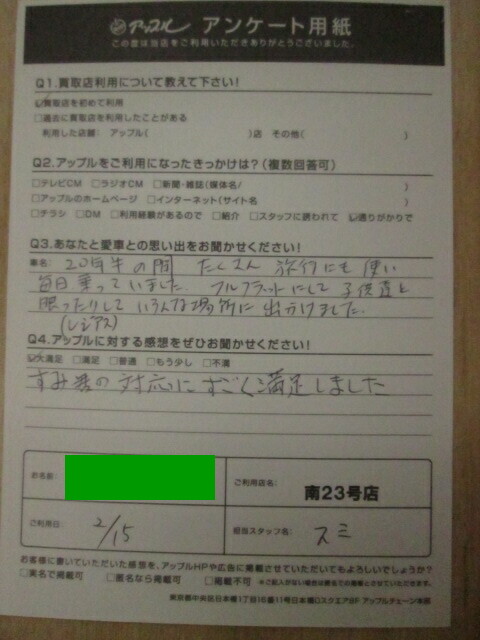 アップル アンケート用紙
この度は当店をご利用いただきありがとうございました。
Q1.買取店利用について教えて下さい!
☑買取店を初めて利用
□過去に買取店を利用したことがある
利用した店舗: アップル( )店 その他( )
Q2.アップルをご利用になったきっかけは?(複数回答可)
□テレビCM □ラジオCM □新聞・雑誌(媒体名/ )
□アップルのホームページ □インターネット(サイト名 )
□チラシ □DM □利用経験があるので □紹介 □スタッフに誘われて ☑通りがかりで
Q3.あなたと愛車との思い出をお聞かせください!
車名: 20年 の間 たくさん 旅行にも使い
毎日乗っていました。フルフラットにして子供達と
眠ったりして いろんな場所に出かけました。
(レジアス)
Q4.アップルに対する感想をぜひお聞かせください!
☑大満足 □満足 □普通 □もう少し □不満
すみ様の対応にすごく満足しました
お名前:
ご利用店名: 南23号店
ご利用日: 2/15
担当スタッフ名: スミ
お客様に書いていただいた感想を、アップルHPや広告に掲載させていただいてもよろしいでしょうか?
□実名で掲載可 □匿名なら掲載可 □掲載不可 ※ご記入がない場合は匿名での掲載とさせていただきます。
東京都中央区日本橋1丁目16番11号日本橋Dスクエア8F アップルチェーン本部